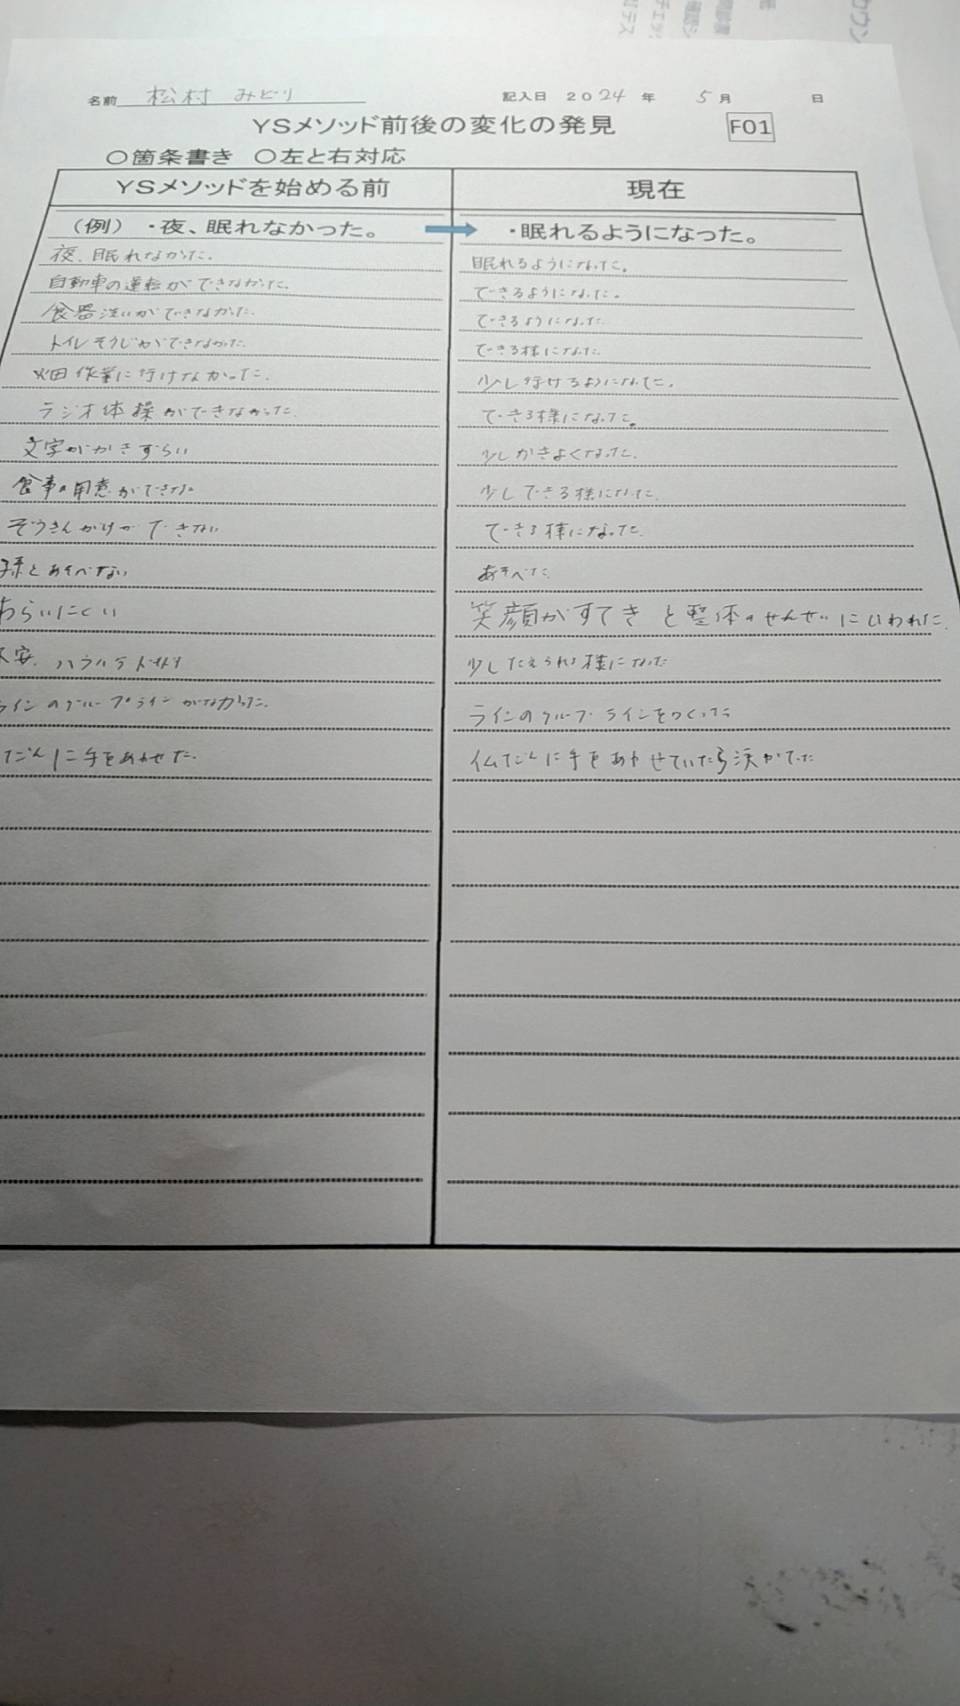 名前 松村 みどり 記入日 2024 年 5月 日
YSメソッド前後の変化の発見 F01
○箇条書き ○左と右対応
YSメソッドを始める前 現在
（例）・夜、眠れなかった。 ・眠れるようになった。
夜、眠れなかった。 眠れるようになった。
自動車の運転ができなかった。 できるようになった。
食器洗いができなかった。 できるようになった
トイレそうじができなかった できる様になった
畑作業に行けなかった。 少し行けるようになった。
ラジオ体操ができなかった できる様になった。
文字がかきずらい 少しかきよくなった。
食事の用意ができない 少しできる様になった。
ぞうきんがけができない できる様になった。
孫とあそべない あそべた
わらいにくい 笑顔がすてきと整体のせんせいにいわれた。
安. 少したえられる様になった
ラインのグループラインがなかった。 ラインのグループラインをつくった
だんに手をあわせた。 仏だんに手をあわせていたら涙がでた